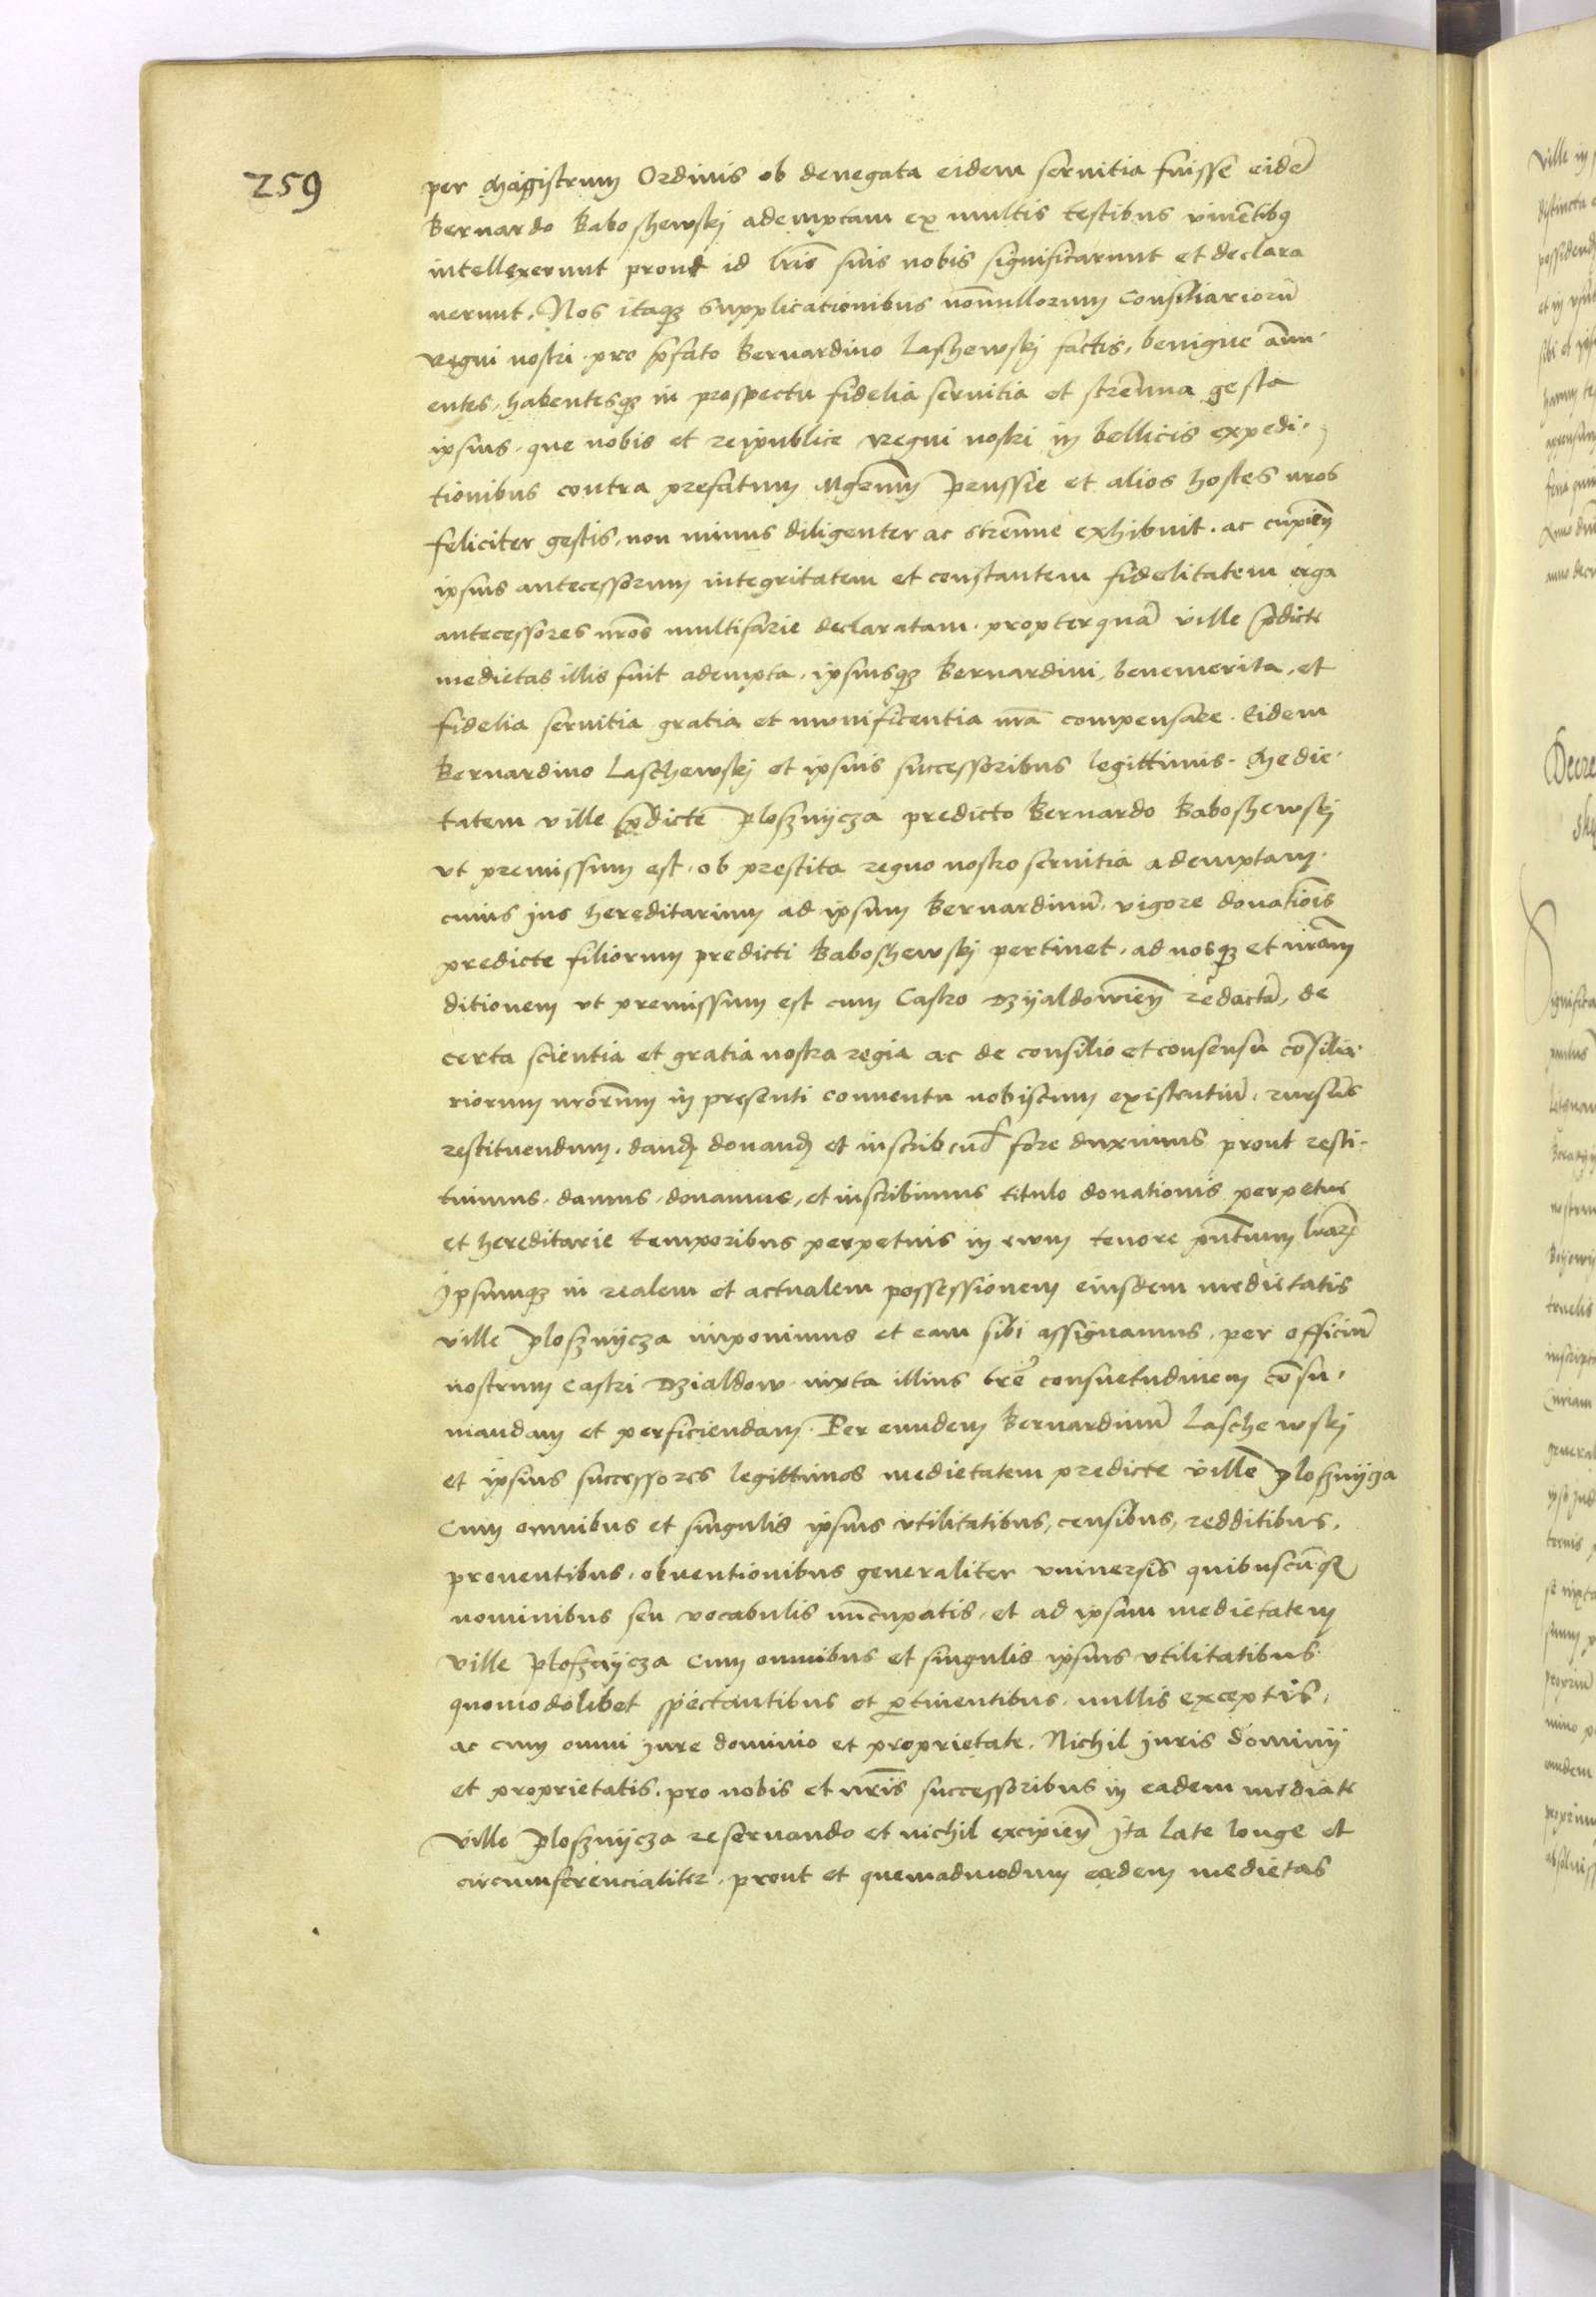 259
per Magistrum Ordinis ob denegata eidem seruitia fuisse eidē
Bernardo Baboszewskj ademptam ex multis testibus viuētibꝯ
intellexerunt prout id lr̄is suis nobis significarunt et declara
uerunt. Nos itaqꝫ supplicationibus nōnullorum consiliariorū
regni nostri pro p̄fato Bernardino Laschewskj factis, benigne ānu-
entes, habentesqꝫ in prospectu fidelia seruitia et strēnua gesta
ipsius, que nobis et reipublice regni nostri in bellicis expedi-
tionibus contra prefatum Mgr̄um Prussie et alios hostes nros
feliciter gestis, non minus diligenter ac strēnue exhibuit. ac cupieñ
ipsius antecessorum integritatem et constantem fidelitatem erga
antecessores nr̄os multifarie declaratam. propter quā ville p̄dicte
medietas illis fuit adempta, ipsiusqꝫ Bernardini, benemerita, et
fidelia seruitia gratia et munificentia nr̄a compensare. Eidem
Bernardino Laschewskj et ipsius successoribus legittimis. Medie-
tatem ville p̄dicte Plosznycza predicto Bernardo Baboszewskj
vt premissum est, ob prestita regno nostro seruitia ademptam.
cuius jus hereditarium ad ipsum Bernardinū, vigore donatiōis
predicte filiorum predicti Baboszewskj pertinet, ad nosqꝫ et nr̄am
ditionem vt premissum est cum Castro Dzyaldowieñ redactā, de
certa scientia et gratia nostra regia ac de consilio et consensu cōsilia-
riorum nrōrum in presenti conuentu nobiscum existentiū, rursus
restituendum, danđ donanđ et inscribenđ fore duximus prout resti-
tuimus, damus, donamus, et inscribimus titulo donationis perpetue
et hereditarie temporibus perpetuis in ewm tenore pn̄tium lr̄arꝫ
Ipsumqꝫ in realem et actualem possessionem eiusdem medietatis
ville Plosznycza imponimus et eam sibi assignamus, per officiū
nostrum castri Dzialdow iuxta illius tr̄e consuetudinem cōsu-
mandam et perficiendam. Per eundem Bernardinū Laschewskj
et ipsius successores legittimos medietatem predicte ville Plosznycza
Cum omnibus et singulis ipsius vtilitatibus, censibus, redditibus,
prouentibus, obuentionibus generaliter vniuersis quibuscūqꝫ
nominibus seu vocabulis nūcupatis, et ad ipsam medietatem
ville Plosznycza cum omnibus et singulis ipsius vtilitatibus
quomodolibet spectantibus et ꝑtinentibus, nullis exceptis,
ac cum omni jure dominio et proprietate. Nichil juris dominij
et proprietatis, pro nobis et nr̄is successoribus in eadem mediate
ville Plosznycza reseruando et nichil excipieñ Ita late longe et
circumferencialiter, prout et quemadmodum eadem medietas